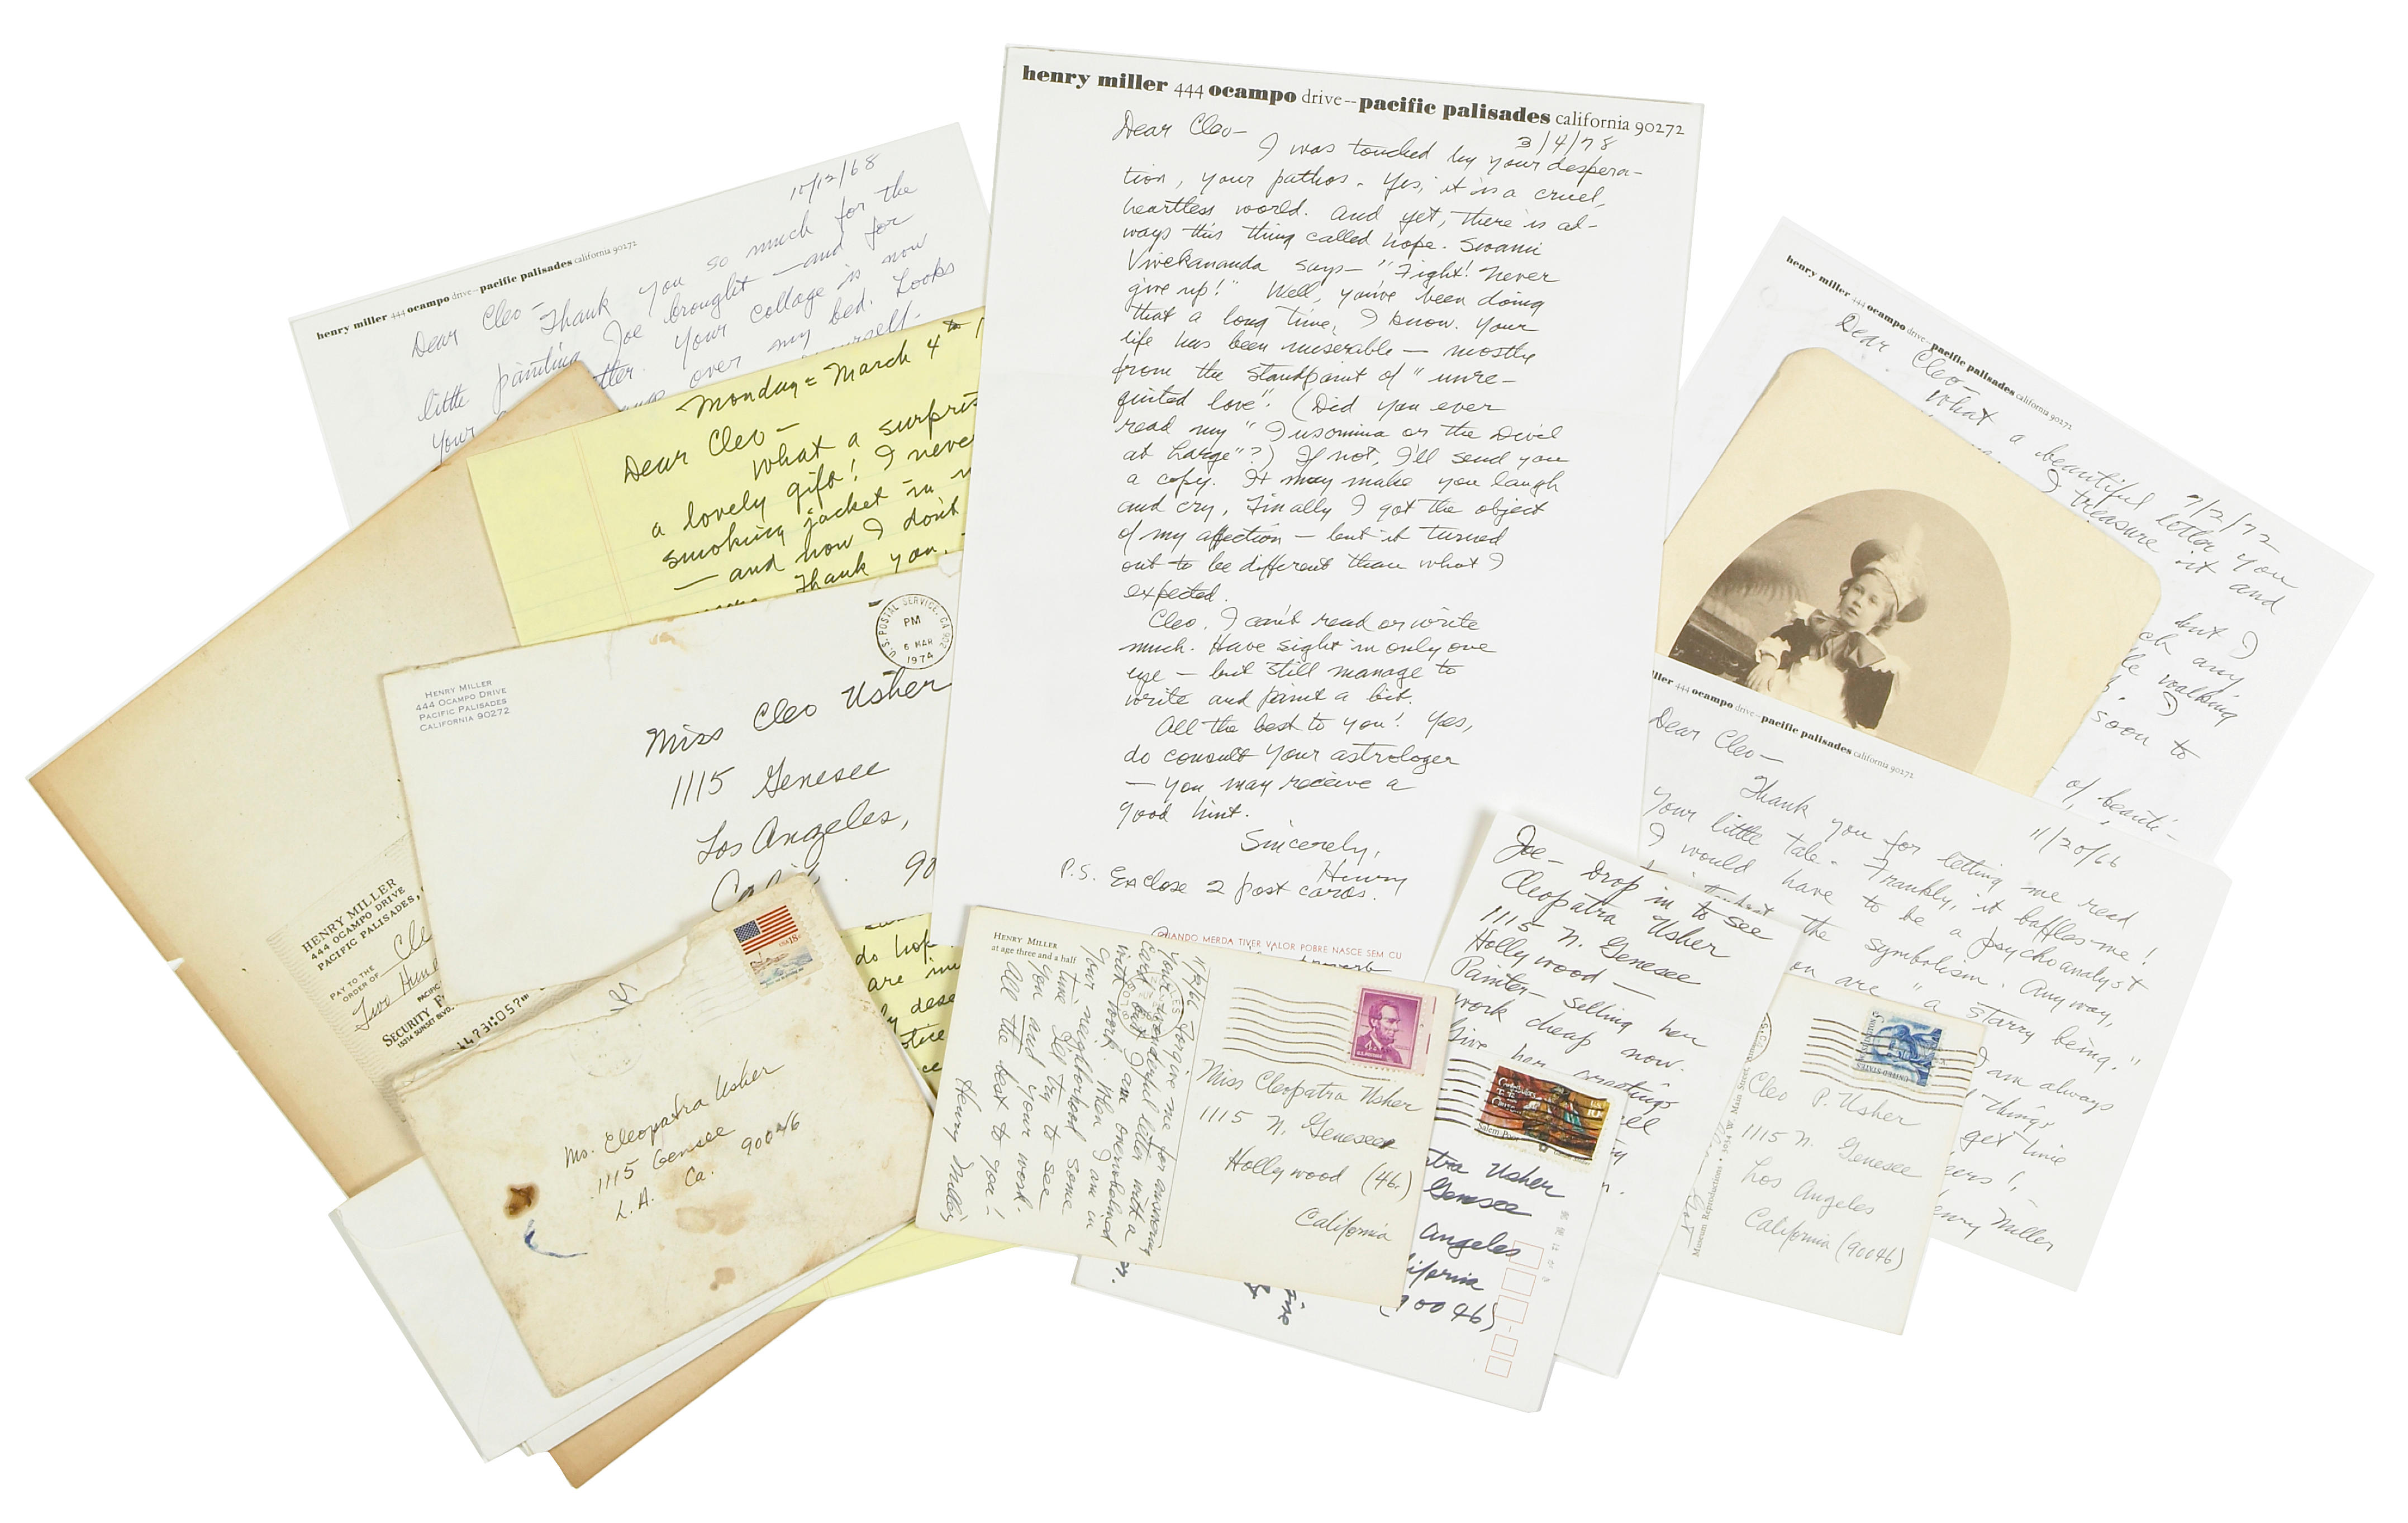 henry miller 444 ocampo drive--pacific palisades california 90272
10/12/68
Dear Cleo - Thank you so much for the
little painting Joe brought - and for
your letter. Your collage is now
over my bed. Looks
Monday - March 4th
Dear Cleo -
What a surprise
a lovely gift! I never
smoking jacket in
- and now I don't
Thank you.
U.S. POSTAL SERVICE, CA 902
PM
6 MAR
1974
HENRY MILLER
444 OCAMPO DRIVE
PACIFIC PALISADES
CALIFORNIA 90272
Miss Cleo Usher
1115 Genesee
Los Angeles,
90
HENRY MILLER
444 OCAMPO DRIVE
PACIFIC PALISADES,
PAY TO THE
ORDER OF
Two
SECURITY
15314 SUNSET BLVD.
do hop
are
USA 18c
Ms. Cleopatra Usher
1115 Genesee
L.A. Ca. 90046
henry miller 444 ocampo drive--pacific palisades california 90272
3/4/78
Dear Cleo-
I was touched by your despera-
tion, your pathos. Yes, it is a cruel,
heartless world. And yet, there is al-
ways this thing called hope. Swami
Vivekananda says- "Fight! Never
give up!" Well, you've been doing
that a long time, I know. Your
life has been miserable - mostly
from the standpoint of "unre-
quited love". (Did you ever
read my "Insomnia or the Devil
at Large"?) If not, I'll send you
a copy. It may make you laugh
and cry. Finally I got the object
of my affection - but it turned
out to be different than what I
expected.
Cleo, I can't read or write
much. Have sight in only one
eye - but still manage to
write and paint a bit.
All the best to you! Yes,
do consult your astrologer
- you may receive a
good hint.
Sincerely,
Henry
P.S. Enclose 2 post cards.
QUANDO MERDA TIVER VALOR POBRE NASCE SEM CU
HENRY MILLER
at age three and a half
11/9/66 Forgive me for answering
your wonderful letter with a
card but I am overwhelmed
with work. When I am in
your neighborhood some
time I'll try to see
you and your work.
All the best to you!
Henry Miller
Miss Cleopatra Usher
1115 N. Genesee
Hollywood (46.)
California
Joe-
Drop in to see
Cleopatra Usher
1115 N. Genesee
Hollywood -
Painter- selling her
work cheap now.
Give her greetings
US 10c
Usher
Genesee
Angeles
California
(90046)
henry miller 444 ocampo drive--pacific palisades california 90272
7/2/72
Dear Cleo-
What a beautiful letter you
I treasure it and
but I
any
walking
soon to
of, beauti-
ller 444 ocampo drive--pacific palisades california 90272
11/20/66
Dear Cleo-
Thank you for letting me read
your little tale. Frankly, it baffles me!
I would have to be a psychoanalyst
the symbolism. Anyway,
are "a starry being."
I am always
things
get time
Cheers!
Henry Miller
UNITED STATES
Museum Reproductions • 3034 W. Main Street,
Cleo P. Usher
1115 N. Genesee
Los Angeles
California (90046)